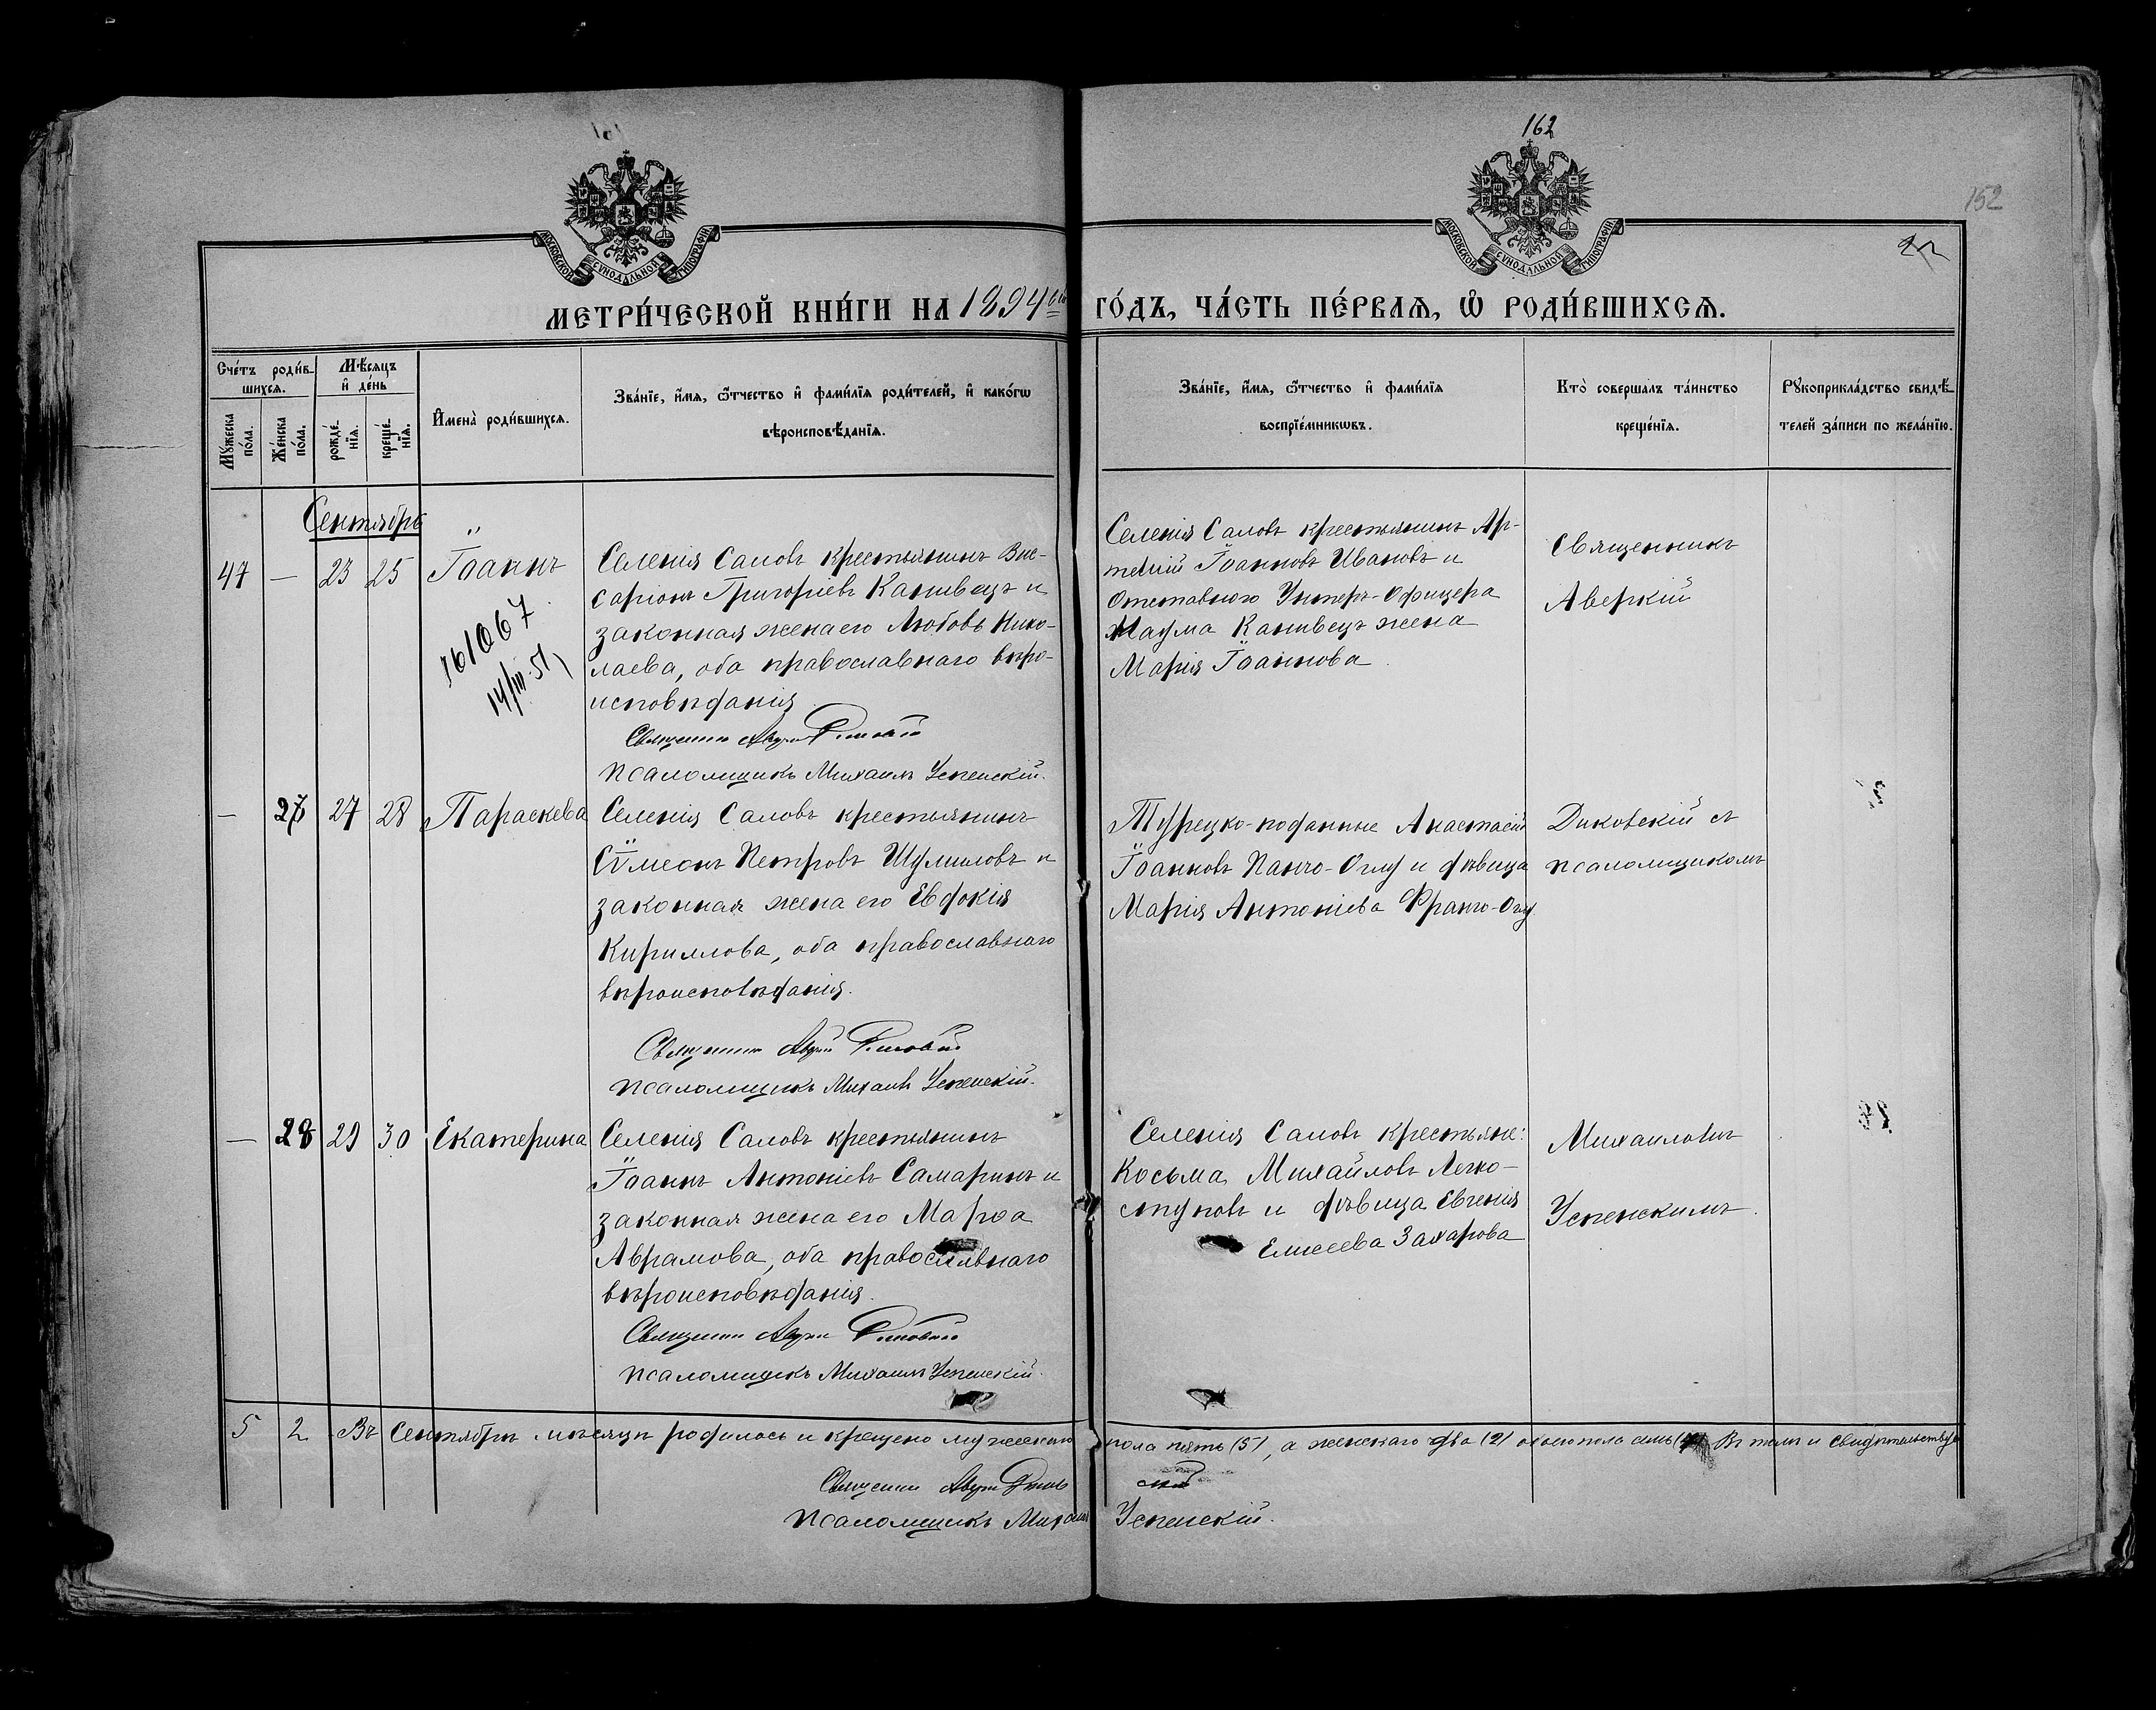 162
152
22
МОСКОВСКОЙ СѴНОДАЛЬНОЙ ТИПОГРАФІИ
МОСКОВСКОЙ СѴНОДАЛЬНОЙ ТИПОГРАФІИ
МЕТРИ́ЧЕСКОЙ КНИ́ГИ НА 1894ый ГО́ДЪ, ЧА́СТЬ ПЕ́РВАѦ, Ѡ҆ РОДИ́ВШИХСѦ.
Сче́тъ роди́в-
шихсѧ.
Мꙋ́жеска по́ла.
Же́нска по́ла.
Мѣ́сяцъ
и҆ де́нь
рожде́-
нїѧ.
креще́-
нїѧ.
И҆мена̀ роди́вшихсѧ.
Зва́нїе, и҆́мѧ, ѻ҆́тчество и҆ фами́лїѧ роди́телей, и҆ како́гѡ
вѣроисповѣ́данїѧ.
Зва́нїе, и҆́мѧ, ѻ҆́тчество и҆ фами́лїѧ
воспрїе́мникѡвъ.
Кто̀ соверша́лъ та́инство
креще́нїѧ.
Рꙋкоприкла́дство свидѣ́-
телей за́писи по жела́нїю.
Сентябрь
47 — 23 25 Іоаннъ
161067
14/III-51
Селенія Саловъ крестьянинъ Вис-
саріонъ Григоріевъ Канивецъ и
законная жена его Любовь Нико-
лаева, оба православнаго вѣро-
исповѣданія
Священникъ
Псаломщикъ Михаилъ Успенскій.
Селенія Саловъ крестьянинъ Ар-
темій Іоанновъ Ивановъ и
Отставного Унтеръ-Офицера
Наума Канивецъ жена
Марія Іоаннова
Священникъ
Аверкій
— 27 27 28 Параскева
Селенія Саловъ крестьянинъ
Сѵмеонъ Петровъ Шумиловъ и
законная жена его Евдокія
Кириллова, оба православнаго
вѣроисповѣданія.
Священникъ
Псаломщикъ Михаилъ Успенскій.
Турецко-поданные Анастасій
Іоанновъ Панчо-Оглу и дѣвица
Марія Антоніева Франго-Оглу
Диковскій съ
псаломщикомъ
— 28 29 30 Екатерина
Селенія Саловъ крестьянинъ
Іоаннъ Антоніевъ Самаринъ и
законная жена его Марѳа
Аврамова, оба православнаго
вѣроисповѣданія.
Священникъ
Псаломщикъ Михаилъ Успенскій.
Селенія Саловъ крестьяне:
Косьма Михайловъ Легко-
ступовъ и дѣвица Евгенія
Елисеева Захарова
Михаиломъ
Успенскимъ.
5 2 Въ Сентябрѣ мѣсяцѣ родилось и крещено мужескаго пола пять (5), а женскаго два (2) обоего пола семь Въ томъ и свидѣтельствуе
Священникъ
Псаломщикъ Михаилъ Успенскій.